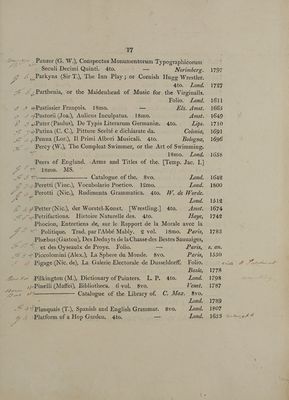 77
Panzer (G. W.), Conspectus Monumentorum Typographicorum
Seculi Decimi Quinti. 4to. — Norimberg. 1797
Parkyns (Sir T.), The Inn Play; or Cornish Hugg Wrestler.
4to. Lond. 1727
Parthenia, or the Maidenhead of Music for the Virginalls.
Folio. Lond. 1611
Pastissier François. 18mo. — Elz. Amst. 1655
Pastorii (Joa.), Aulicus Inculpatus. 18mo. Amst. 1649
Pater (Paulus), De Typis Literarum Germaniæ. 4to. Lips. 1710
Patina (C. C.), Pitture Scelté e dichiarate da. Colonia, 1691
Penna (Lor.), Il Primi Alberi Musicali. 4to. Bologna, 1696
Percy (W.), The Compleat Swimmer, or the Art of Swimming.
18mo. Lond. 1658
Peers of England. Arms and Titles of the. [Temp. Jac. I.]
18mo. MS.
Catalogue of the. 8vo. Lond. 1642
Peretti (Vinc.), Vocabolario Poetico. 12mo. Lond. 1800
Perotti (Nic.), Rudimenta Grammatices. 4to. W. de Worde.
Lond. 1512
Petter (Nic.), der Worstel-Konst. [Wrestling.] 4to. Amst. 1674
Petrifactions. Histoire Naturelle des. 4to. Haye, 1742
Phocion, Entretiens de, sur le Rapport de la Morale avec la
Politique. Trad. par l'Abbé Mably. 2 vol. 18mo. Paris, 1783
Phœbus (Gaston), Des Deduyts de la Chasse des Bestes Sauuaiges,
et des Oyseaulx de Proye. Folio. — Paris, s. an.
Piccolomini (Alex.), La Sphere du Monde. 8vo. Paris, 1550
Pigage (Nic. de), La Galerie Electorale de Dusseldorff. Folio.
Basle, 1778
Pilkington (M.), Dictionary of Painters. L. P. 4to. Lond. 1798
Pinelli (Maffei), Bibliotheca. 6 vol. 8vo. Venet. 1787
Catalogue of the Library of. C. Maz. 8vo.
Lond. 1789
Planquais (T.), Spanish and English Grammar. 8vo. Lond. 1807
Platform of a Hop Garden. 4to. — Lond.